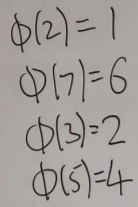 ϕ(2)=1
ϕ(7)=6
ϕ(3)=2
ϕ(5)=4